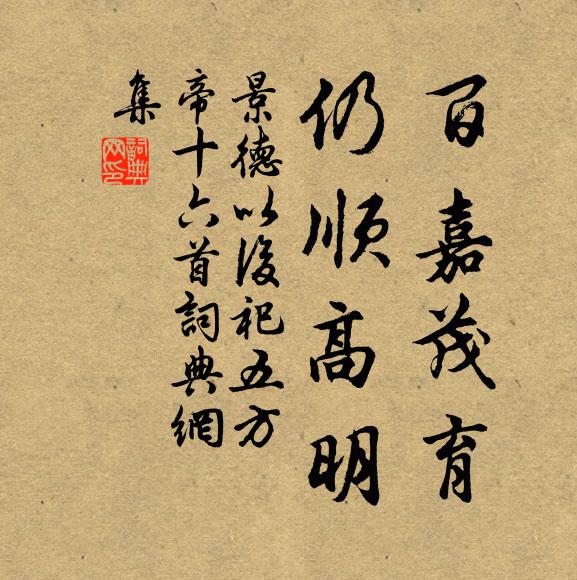 百嘉茂育
仍順高明
景德以後祀五方
帝十六首詞典網
集
詞典
網印